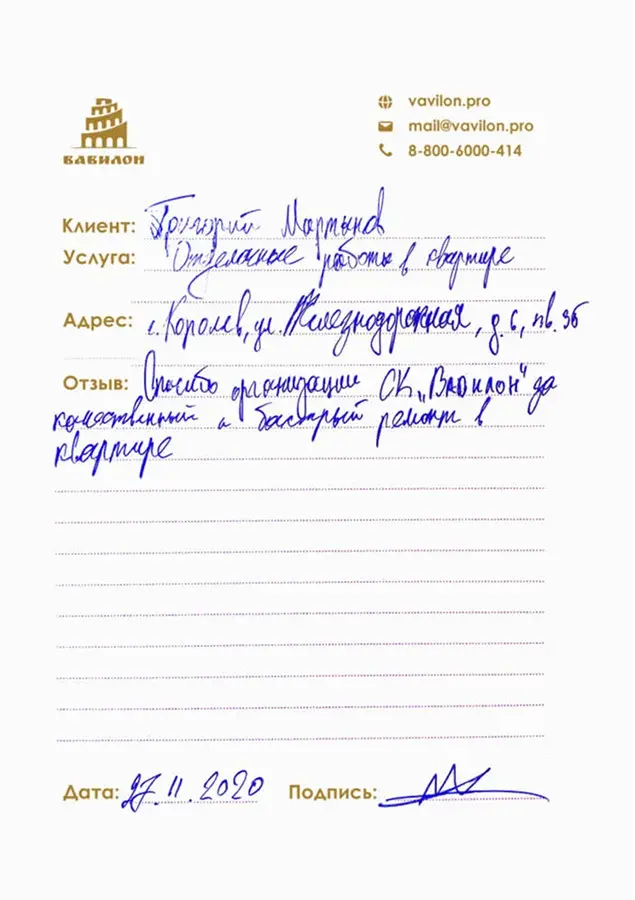 ВАВИЛОН
vavilon.pro
mail@vavilon.pro
8-800-6000-414
Клиент: Григорий Мартынов
Услуга: Отделочные работы в квартире
Адрес: г. Королев, ул. Железнодорожная, д. 6, кв. 36
Отзыв: Спасибо организации СК „Вавилон" за
качественный и быстрый ремонт в
квартире
Дата: 27.11.2020 Подпись: